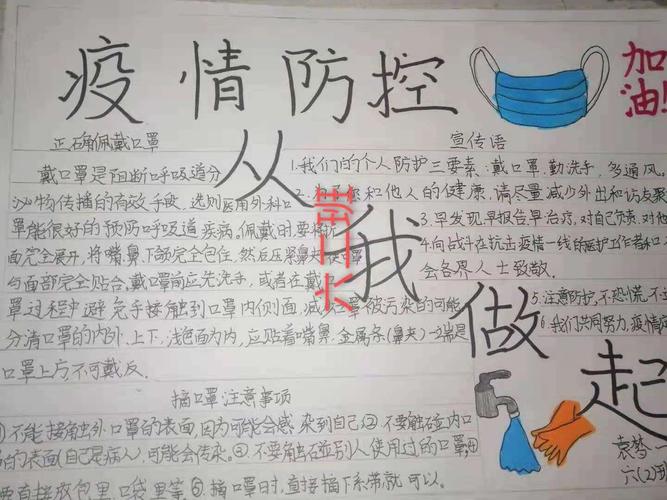 疫情防控
加油!
从我做起
正确佩戴口罩
戴口罩是阻断呼吸道分
泌物传播的有效手段,选则医用外科口
罩能很好的预防呼吸道疾病。佩戴时要将折
面完全展开,将嘴鼻、下颌完全包住,然后压紧鼻夹,使口罩
与面部完全贴合,戴口罩前应先洗手,或者在戴口
罩过程中避免手接触到口罩内侧面,减少口罩被污染的可能
分清口罩的内外、上下,浅色面为内,应贴着嘴鼻,金属条(鼻夹)一端是
口罩上方,不可戴反.
摘口罩注意事项
①不能接触外口罩的表面,因为可能会感染到自己②不要触碰内口
的表面(自己是病人),可能会传染。③不要触碰别人使用过的口罩④
要直接放包里、口袋里等⑤摘口罩时,直接摘下系带就可以.
宣传语
1.我们的个人防护三要素:戴口罩.勤洗手、多通风。
2.为了您和他人的健康,请尽量减少外出和访友聚
3.早发现,早报告,早治疗,对自己负责,对他
4.向战斗在抗击疫情一线的医护工作者和
会各界人士致敬.
5.注意防护,不恐慌,不
6.我们共同努力,疫情
袁梦一
六(2)班